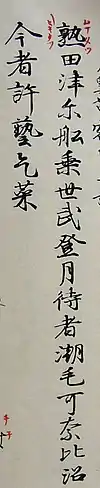 熟田津尓舩乗世武登月待者潮毛可奈比沼
今者許藝乞菜